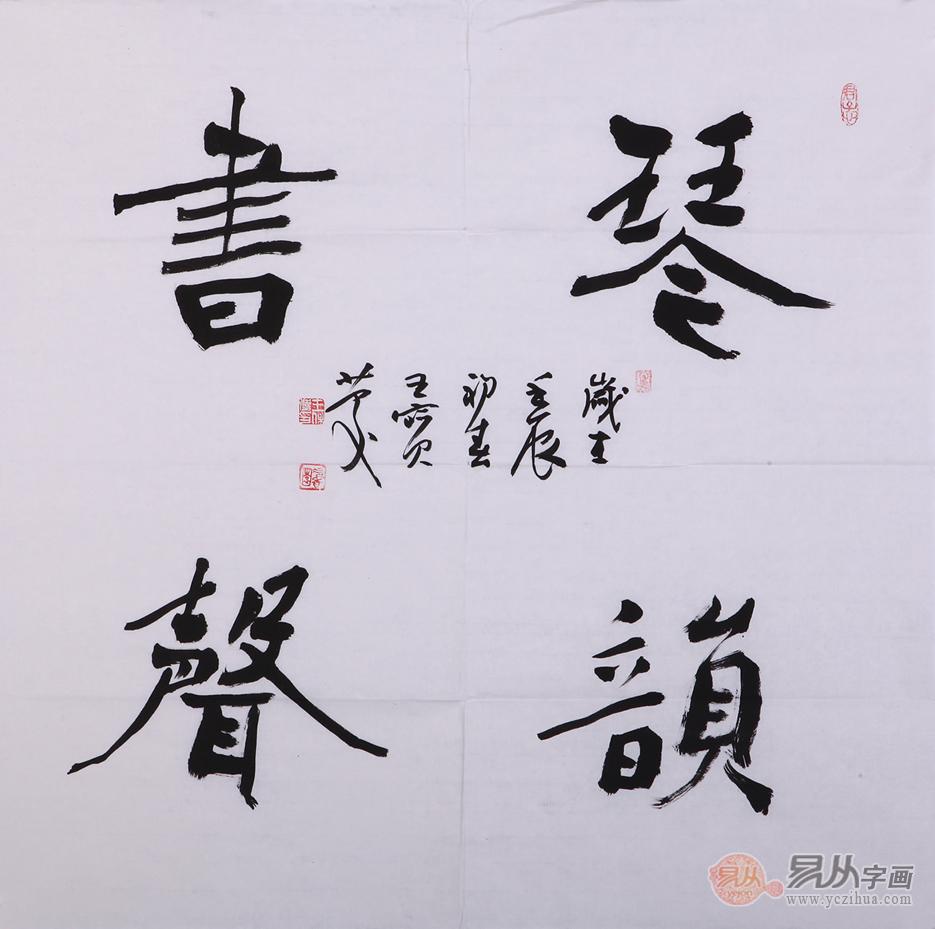 琴韻
書聲
歲在
壬辰
初春
易从字画
www.yczihua.com